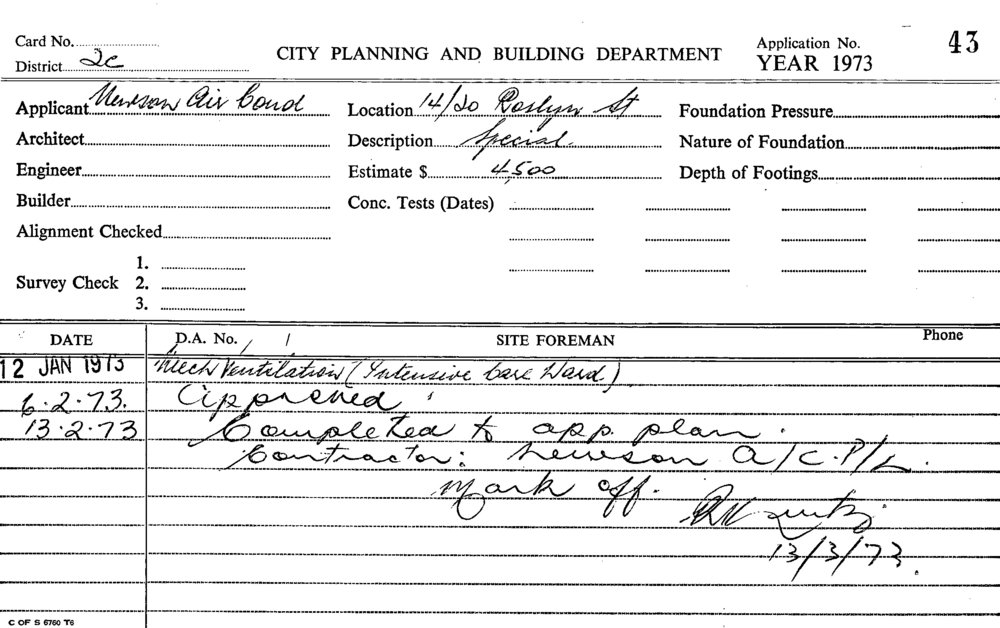 Card No.
CITY PLANNING AND BUILDING DEPARTMENT
Application No. 43
District 2C
YEAR 1973
Applicant Newson Air Cond
Location 14/20 Roslyn St
Foundation Pressure
Architect
Description Special
Nature of Foundation
Engineer
Estimate $ 4,500
Depth of Footings
Builder
Conc. Tests (Dates)
Alignment Checked
1.
Survey Check 2.
3.
DATE D.A. No. / / SITE FOREMAN Phone
12 JAN 1973 Mech Ventilation (Intensive Care Ward)
6.2.73. Approved
13.2.73 Completed to app. plan.
Contractor: Newson A/C. P/L.
Mark off.
13/3/73.
C OF S 6760 T6